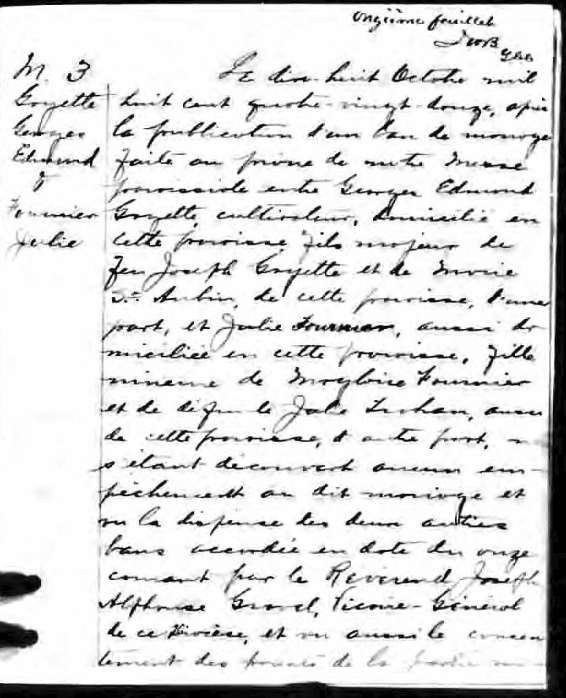 Onzième feuillet
M. 3
Goyette
Georges
Edmond
&
Fournier
Julie
Le dix-huit Octobre mil
huit cent quatre-vingt-douze, après
la publication d'un ban de mariage
faite au prône de notre Messe
paroissiale entre Georges Edmond
Goyette, cultivateur, domicilié en
cette paroisse, fils majeur de
feu Joseph Goyette et de Marie
St. Aubin, de cette paroisse, d'une
part, et Julie Fournier, aussi do
miciliée en cette paroisse, fille
mineure de Fournier
et de défunte Julie, aussi
de cette paroisse, d'autre part, ne
s'étant découvert aucun em-
pêchement au dit mariage et
vu la dispense des deux autres
bans accordée en date du onze
courant par le Révérend Joseph
Alphonse Gravel, Vicaire-Général
de ce Diocèse, et vu aussi le consen
tement des parents de la partie